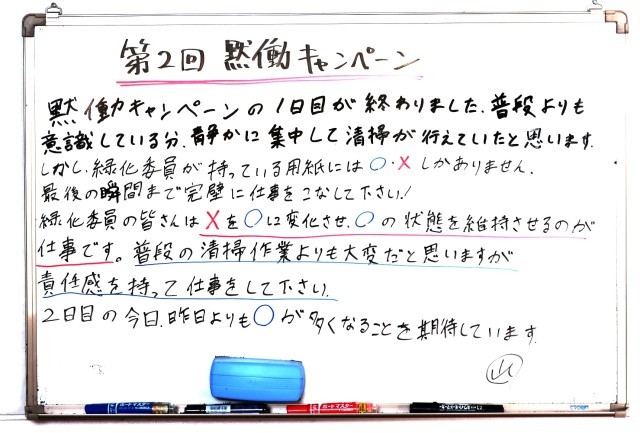 第2回 黙働キャンペーン
黙働キャンペーンの1日目が終わりました。普段よりも
意識している分、静かに集中して清掃が行えていたと思います。
しかし、緑化委員が持っている用紙には○・×しかありません。
最後の瞬間まで完璧に仕事をこなして下さい!
緑化委員の皆さんは×を○に変化させ、○の状態を維持させるのが
仕事です。普段の清掃作業よりも大変だと思いますが
責任感を持って仕事をして下さい。
2日目の今日、昨日よりも○が多くなることを期待しています。
山
ボードマスター